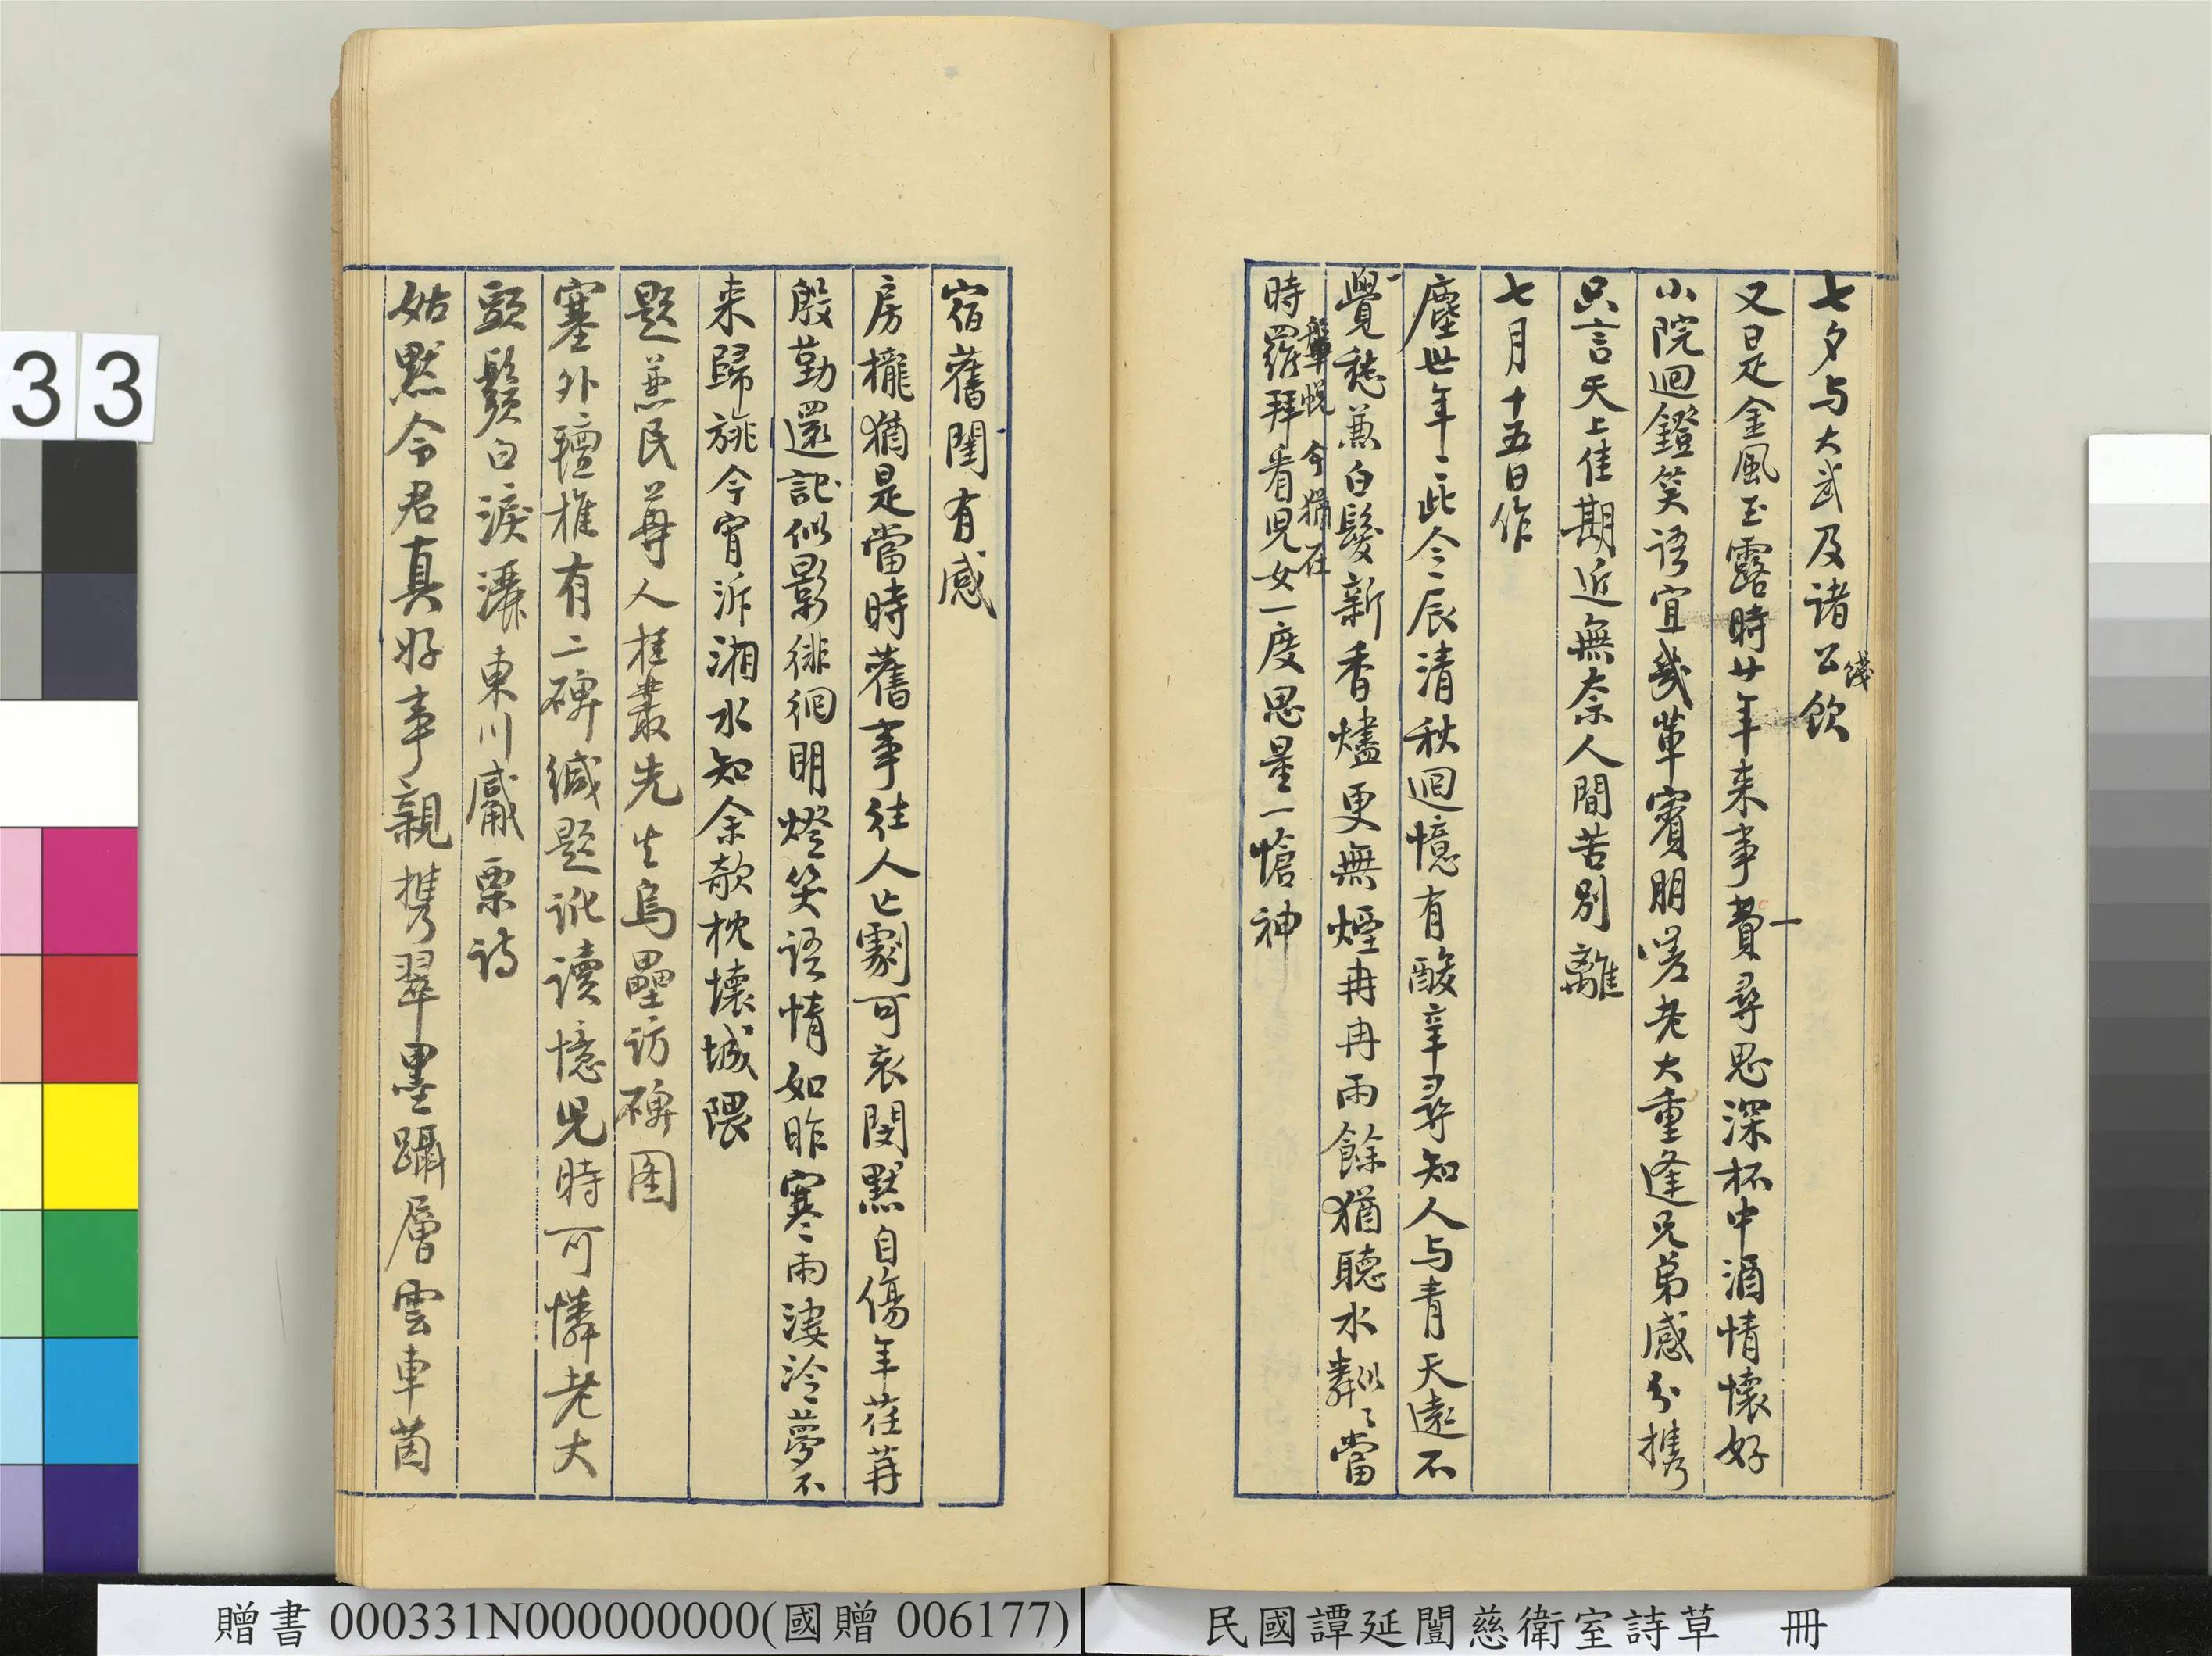 七夕与大武及諸公餞飲
又是金風玉露時廿年来事費尋思深杯中酒情懷好
小院迴鐙笑語宜幾輩賓朋嗟老大重逢兄弟感分攜
只言天上佳期近無奈人間苦別離
七月十五日作
塵世年〻此令辰清秋迴憶有酸辛尋知人与青天遠不
覺愁兼白髮新香燼更無煙冉冉雨餘猶聽水粼〻當
盤帨今猶在
時羅拜看兒女一度思量一愴神
宿舊閨有感
房櫳猶是當時舊事往人亡劇可哀閔默自傷年荏苒
殷勤還記似影徘徊明燈笑語情如昨寒雨淒泠夢不
来歸旐今宵泝湘水知余欹枕懷城隈
題兼民尊人桂叢先生烏壘訪碑图
塞外輶榷有二碑緘題訛讀憶兒時可憐老大
頭鬚白淚灑東川觱栗詩
姑默令君真好事親攜翠墨躡層雲車茵
33
贈書 000331N000000000(國贈 006177)
民國譚延闓慈衛室詩草 冊